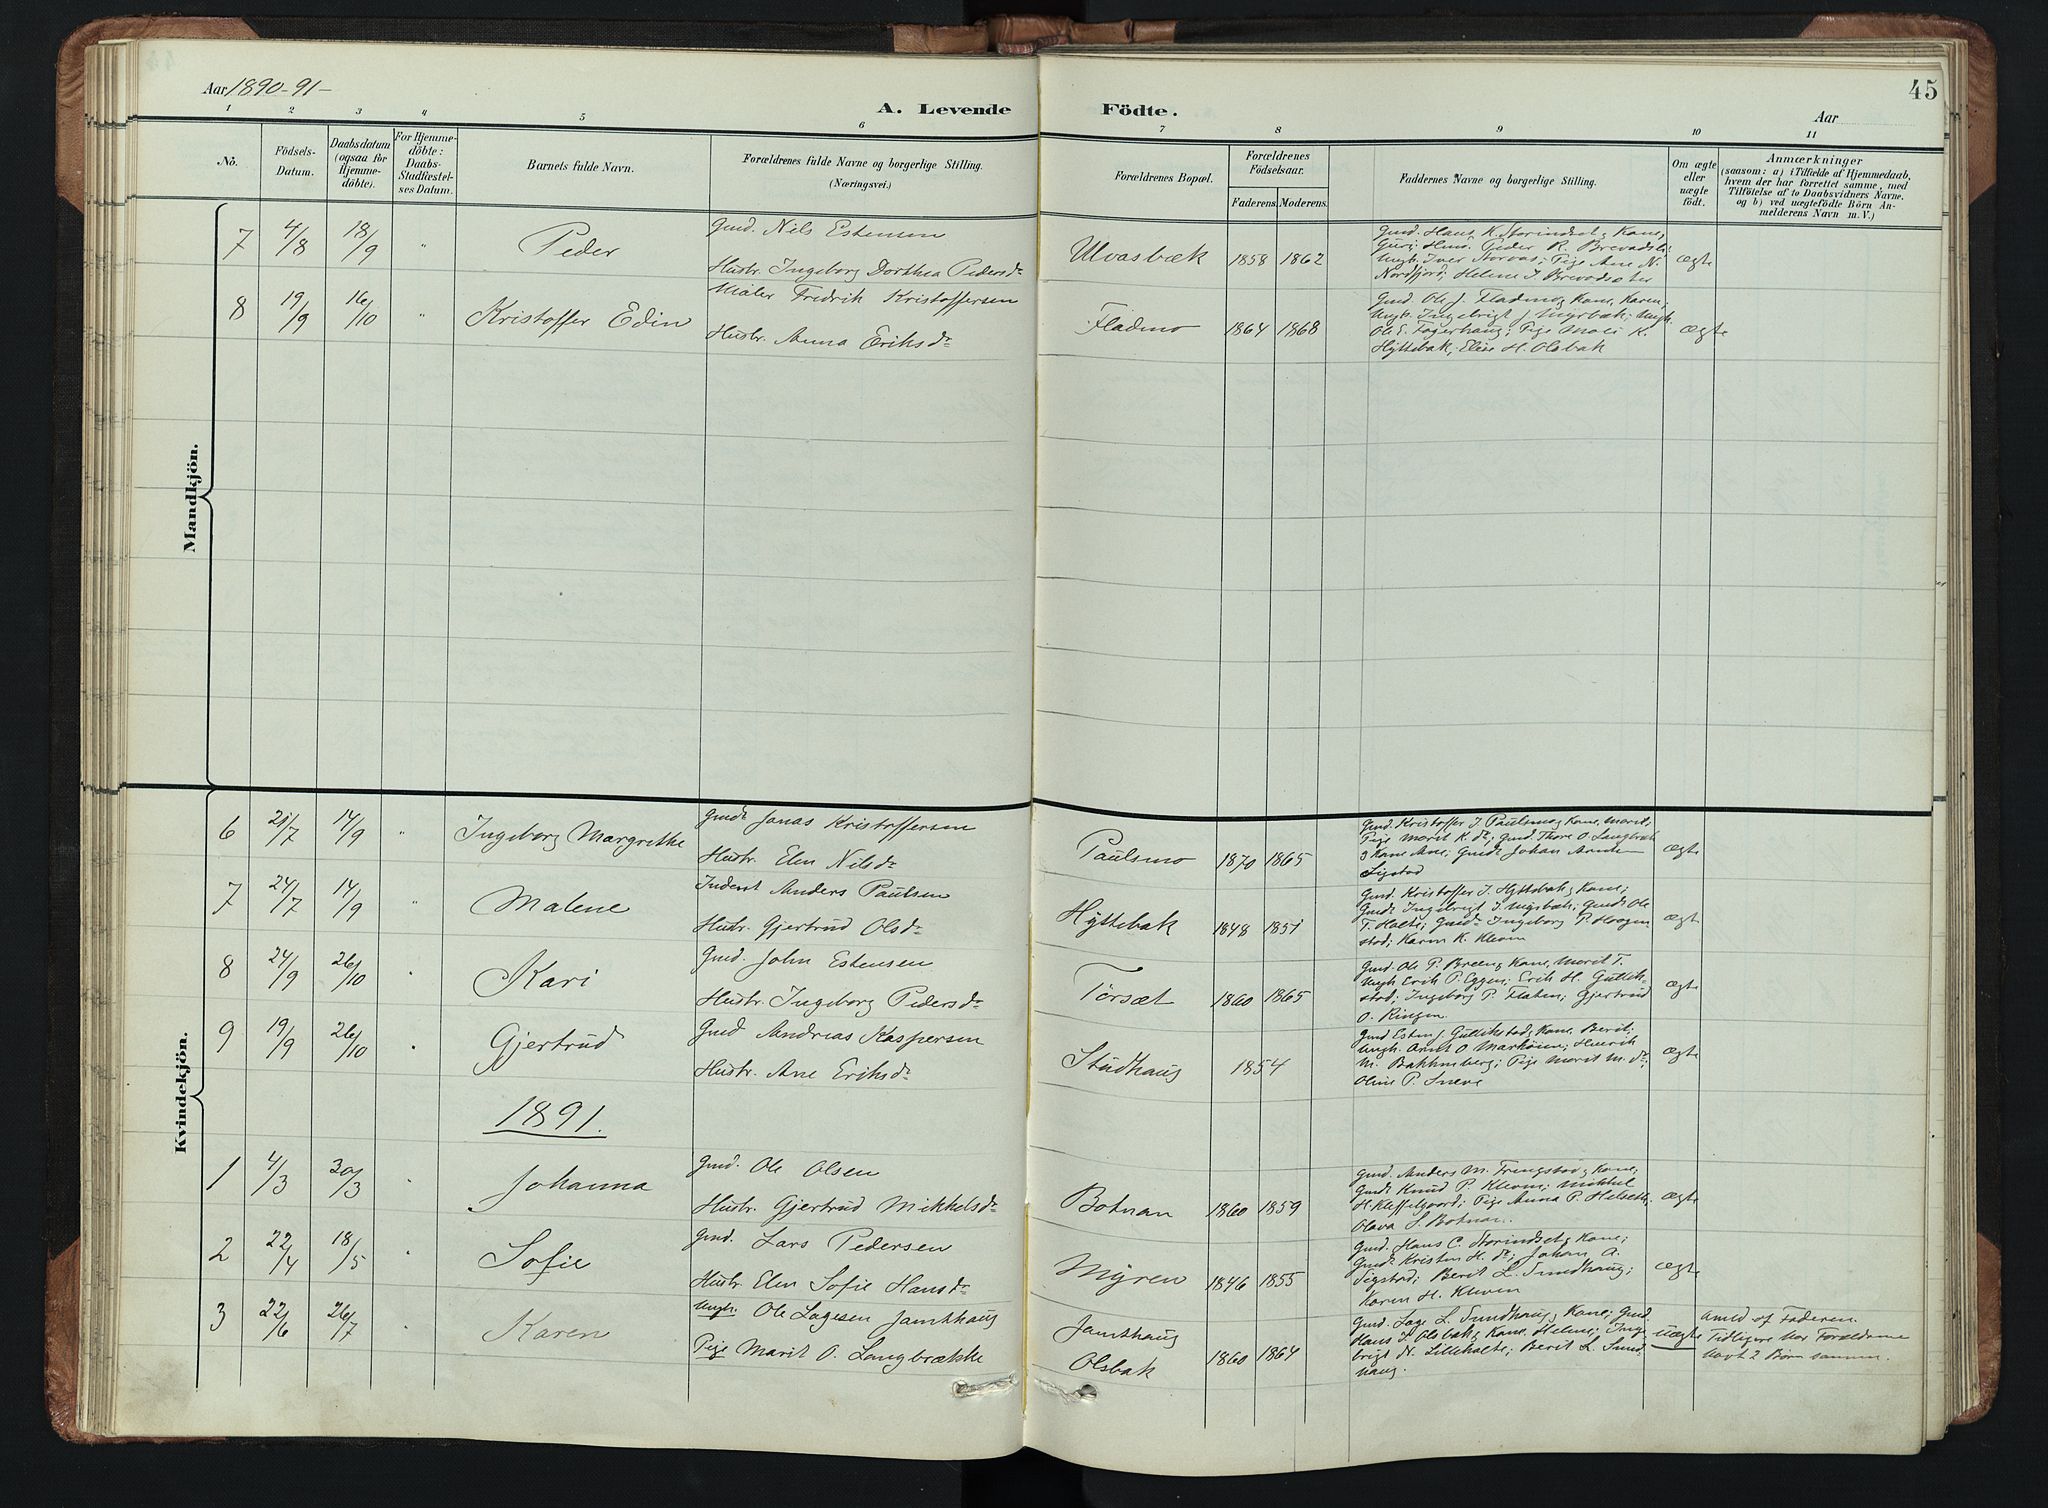 Aar 1890-91-
A. Levende Födte.
Aar
45
1 2 3 4 5 6 7 8 9 10 11
No.
Födsels-
Datum.
Daabsdatum
(ogsaa for
Hjemme-
döbte).
For Hjemme-
döbte:
Daabs-
Stadfæstel-
ses Datum.
Barnets fulde Navn.
Forældrenes fulde Navne og borgerlige Stilling.
(Næringsvei.)
Forældrenes Bopæl.
Forældrenes
Födselsaar.
Faderens. Moderens.
Faddernes Navne og borgerlige Stilling.
Om ægte
eller
uægte
födt.
Anmærkninger
(saasom: a) i Tilfælde af Hjemmedaab,
hvem der har forrettet samme, med
Tilföielse af to Daabsvidners Navne,
og b) ved uægtefödte Börn An-
melderens Navn m. V.)
Mandkjön.
7 4/8 18/9 " Peder
Gmd. Nils Estensen
Hustr. Ingeborg Dorthea Pedersdr
Ulvasbæk 1858 1862
Gmd. Hans K. Storindset, Kone,
Guri; Gmd. Peder R. Brevadsl;
Ungk. Iver Storvas; Pige Ane N.
Nordfjord; Helene J. Brevadsæter
Ægte
8 19/9 16/10 " Kristoffer Edin
Maler Fredrik Kristoffersen
Hustr. Anna Eriksdr
Fladmo 1864 1868
Gmd. Ole J. Fladmo, Kone, Karen;
Ungk. Ingebrigt J. Myrbæk; Ungk.
Ole E. Fagerhaug; Pige Mali K.
Hyttebak; Elise H. Olsbak
Ægte
Kvindekjön.
6 21/7 14/9 " Ingeborg Margrethe
Gmd. Jonas Kristoffersen
Hustr. Elen Nilsdr
Paulsmo 1870 1865
Gmd. Kristoffer J. Paulsmo, Kone, Marit;
Pige Marit K. dr; Gmd. Thore O. Langbræk
& Kone Ane; Gmd. Johan Arntsen
Sigstad
Ægte
7 24/7 14/9 " Malene
Inderst Anders Paulsen
Hustr. Gjertrud Olsdr
Hyttebak 1848 1851
Gmd. Kristoffer J. Hyttebak, Kone;
Gmd. Ingebrigt J. Myrbæk; Gmd. Ole
T. Holte; Ingeborg P. Hoogen
stad; Karen K. Kleven
Ægte
8 24/9 26/10 " Kari
Gmd. John Estensen
Hustr. Ingeborg Pedersdr
Torsæt 1860 1865
Gmd. Ole P. Breen, Kone, Marit T.
Ungk. Erik P. Eggen; Erik H. Gullik-
stad; Ingeborg P. Flaten; Gjertrud
O. Ringen.
Ægte
9 19/9 26/10 " Gjertrud
Gmd Andreas Kaspersen
Hustr. Ane Eriksdr
Studhaug 1854
Gmd Esten J. Gullikstad, Kone, Berit;
Ungk. Arnt O. Markhiem; Henrik
M. Bakkenberg; Pige Marit M. dr;
Oline P. Sneve
Ægte
1891.
1 4/3 30/3 " Johanna
Gmd. Ole Olsen
Hustr. Gjertrud Mikkelsdr
Botnan 1860 1859
Gmd. Anders M. Trengstad, Kone;
Gmd. Knud P. Kleven; Mikkel
H. Kleffelgaard; Pige Anna P. Helseth;
Olava S. Botnan.
Ægte
2 22/4 18/5 " Sofie
Gmd. Lars Pedersen
Hustr. Elen Sofie Hansdr
Myren 1846 1855
Gmd. Hans C. Storindset, Kone;
Gmd. Kristen H. dr; Johan A.
Sigstad; Berit L. Sundhaug;
Karen H. Kleven
Ægte
3 22/6 26/7 Karen
Ungk. Ole Lagesen Jamthaug
Pige Marit O. Langbrække
Jamthaug
Olsbak 1860 1864
Gmd. Lage L. Sundhaug, Kone; Gmd.
Hans J. Olsbak, Kone, Helene; Inge
brigt N. Lilleholte; Berit L. Sund-
haug.
Uægte
Anmld af Faderen.
Tidligere har Forældrene
havt 2 Børn sammen.